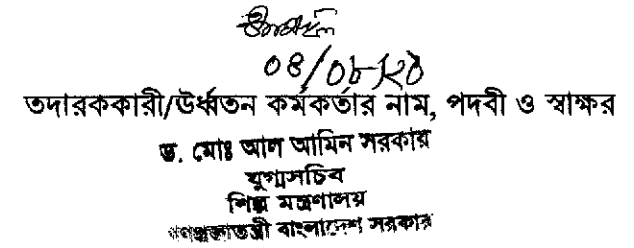 ০৪/০৮/২০
তদারককারী/উর্ধ্বতন কর্মকর্তার নাম, পদবী ও স্বাক্ষর
ড. মোঃ আল আমিন সরকার
যুগ্মসচিব
শিল্প মন্ত্রণালয়
গণপ্রজাতন্ত্রী বাংলাদেশ সরকার